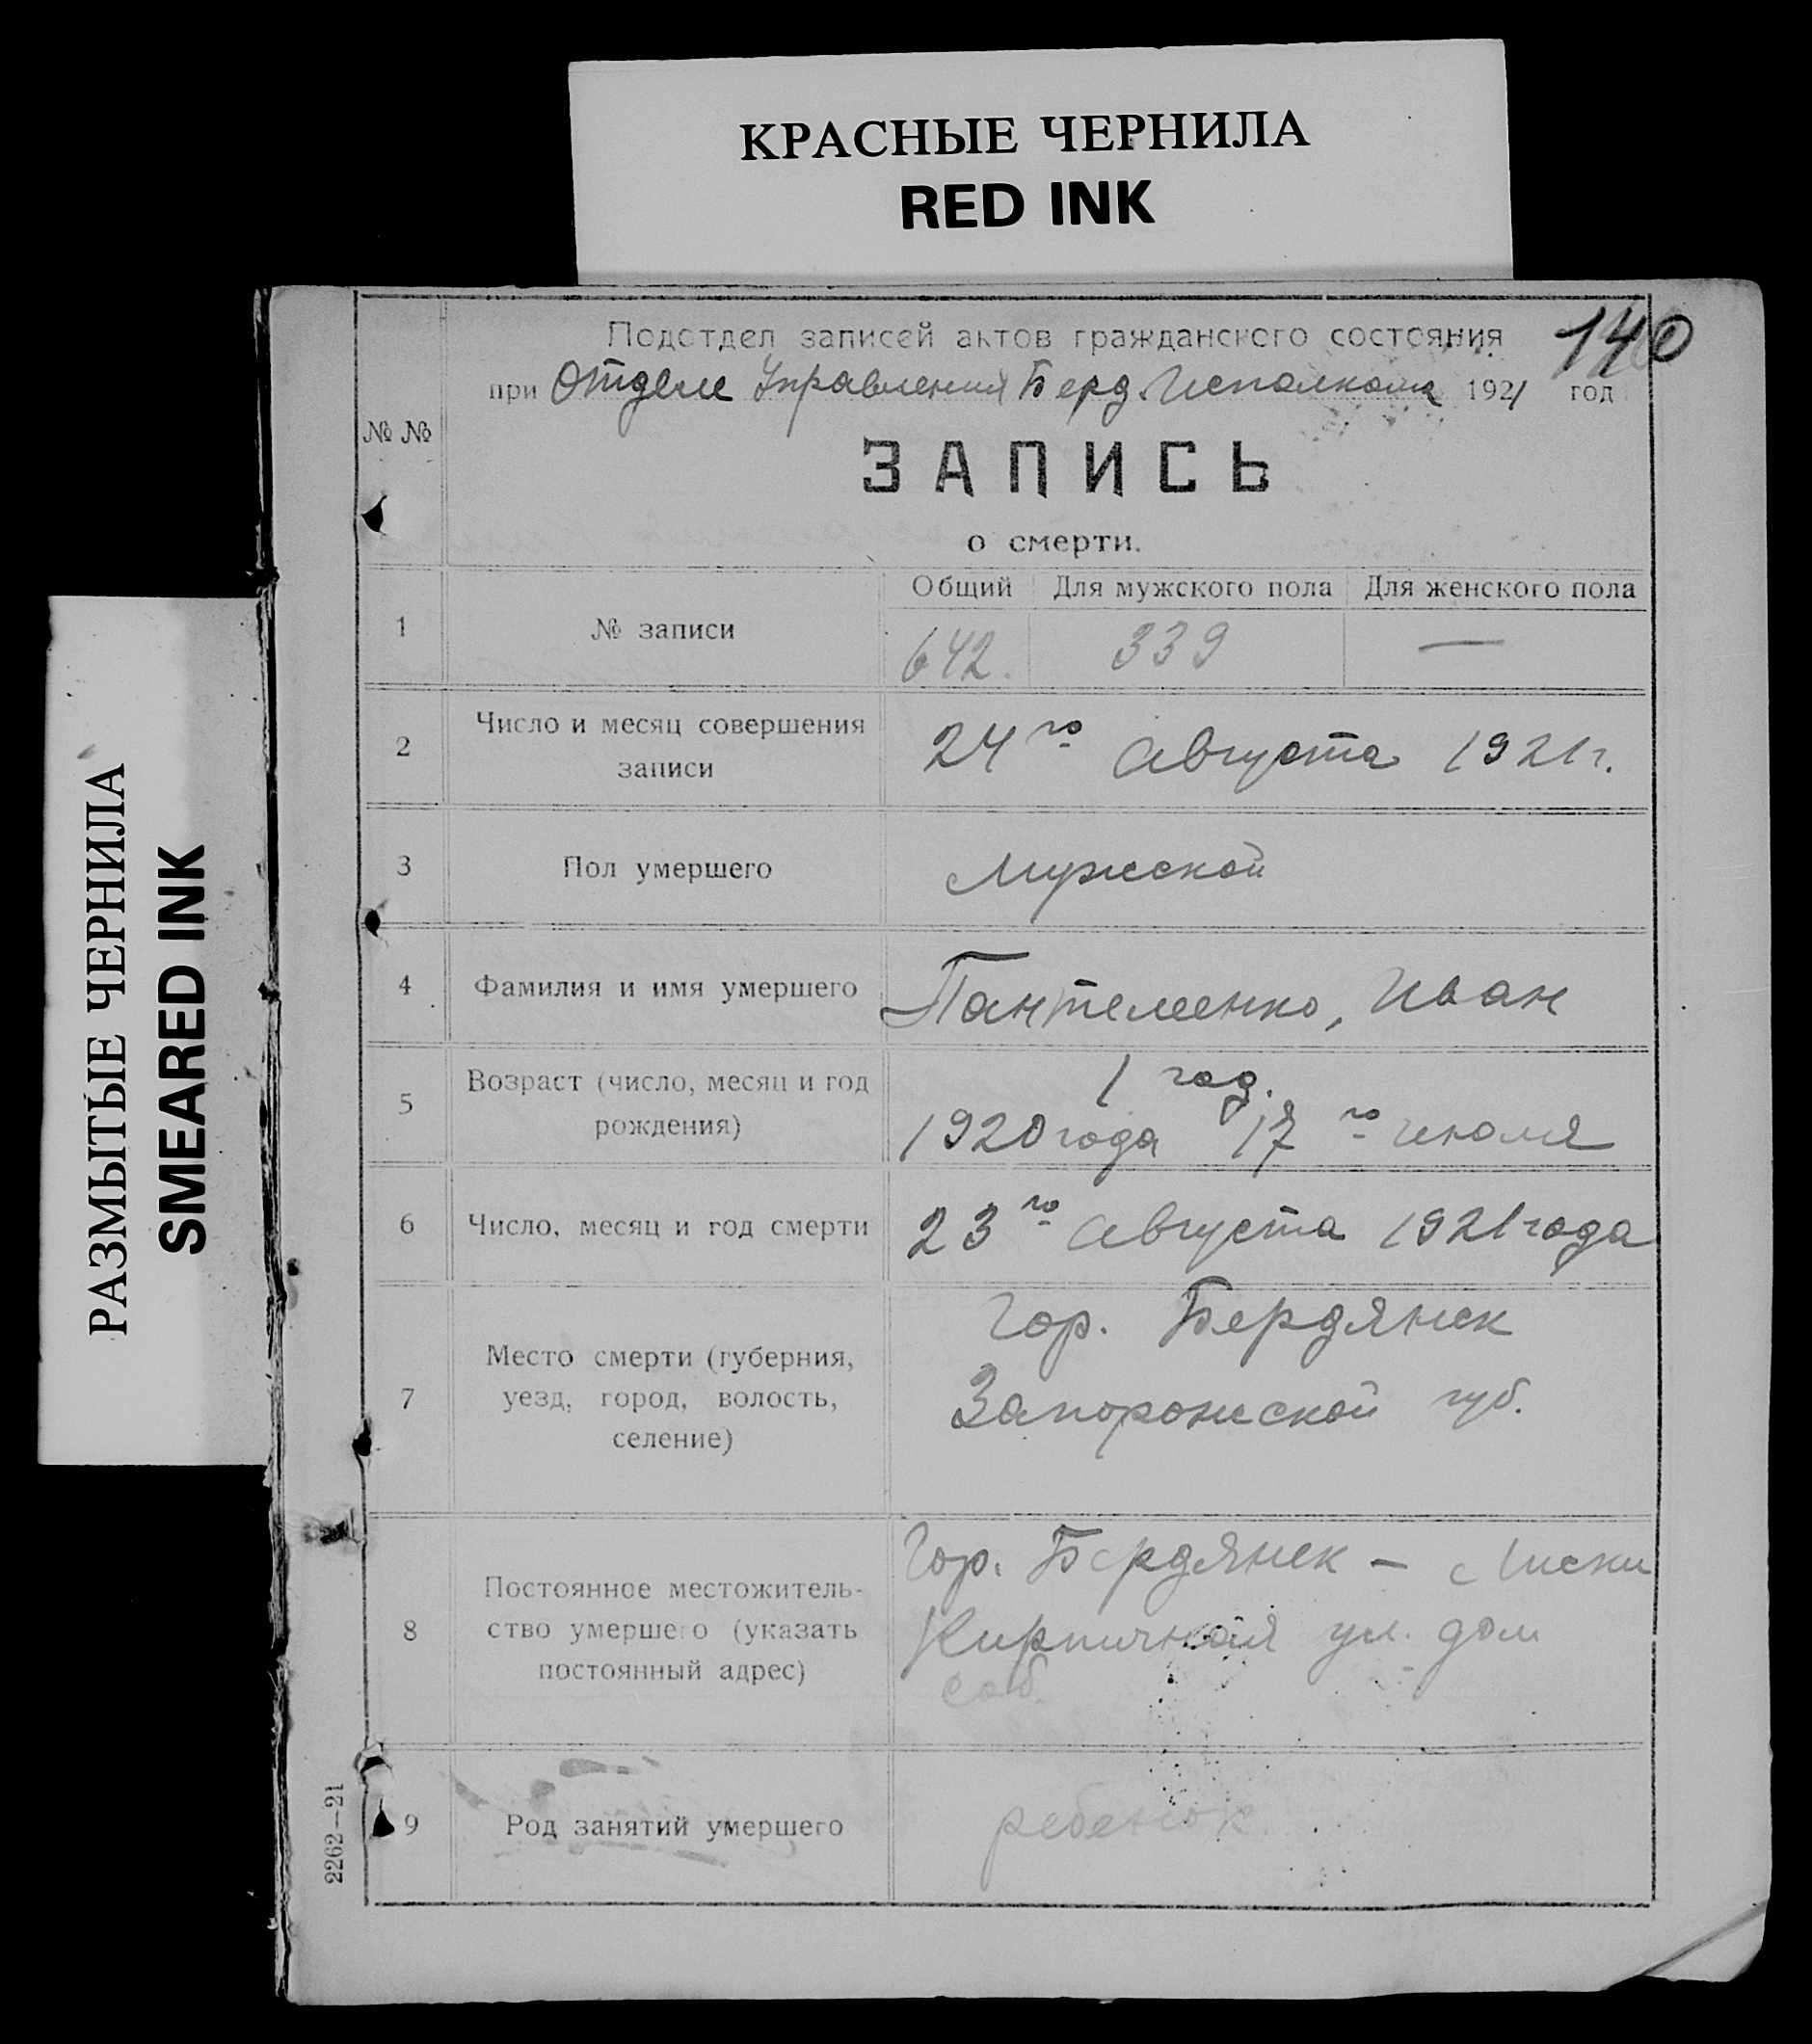 КРАСНЫЕ ЧЕРНИЛА
RED INK
РАЗМЫТЫЕ ЧЕРНИЛА
SMEARED INK
140
Подотдел записей актов гражданского состояния
при Отделе Управления Берд. Исполкома 1921 год
№ №
ЗАПИСЬ
о смерти.
Общий Для мужского пола Для женского пола
1 № записи 642. 339 —
2 Число и месяц совершения
записи
24го августа 1921 г.
3 Пол умершего Мужской
4 Фамилия и имя умершего Пантеленко, Иван
5 Возраст (число, месяц и год
рождения)
1 год.
1920 года 17го июля
6 Число, месяц и год смерти 23го августа 1921 года
7 Место смерти (губерния,
уезд, город, волость,
селение)
Гор. Бердянск
Запорожской губ.
8 Постоянное местожитель-
ство умершего (указать
постоянный адрес)
Гор. Бердянск — Лиски
Кирпичная ул. дом
соб.
9 Род занятий умершего ребенок
2262—21